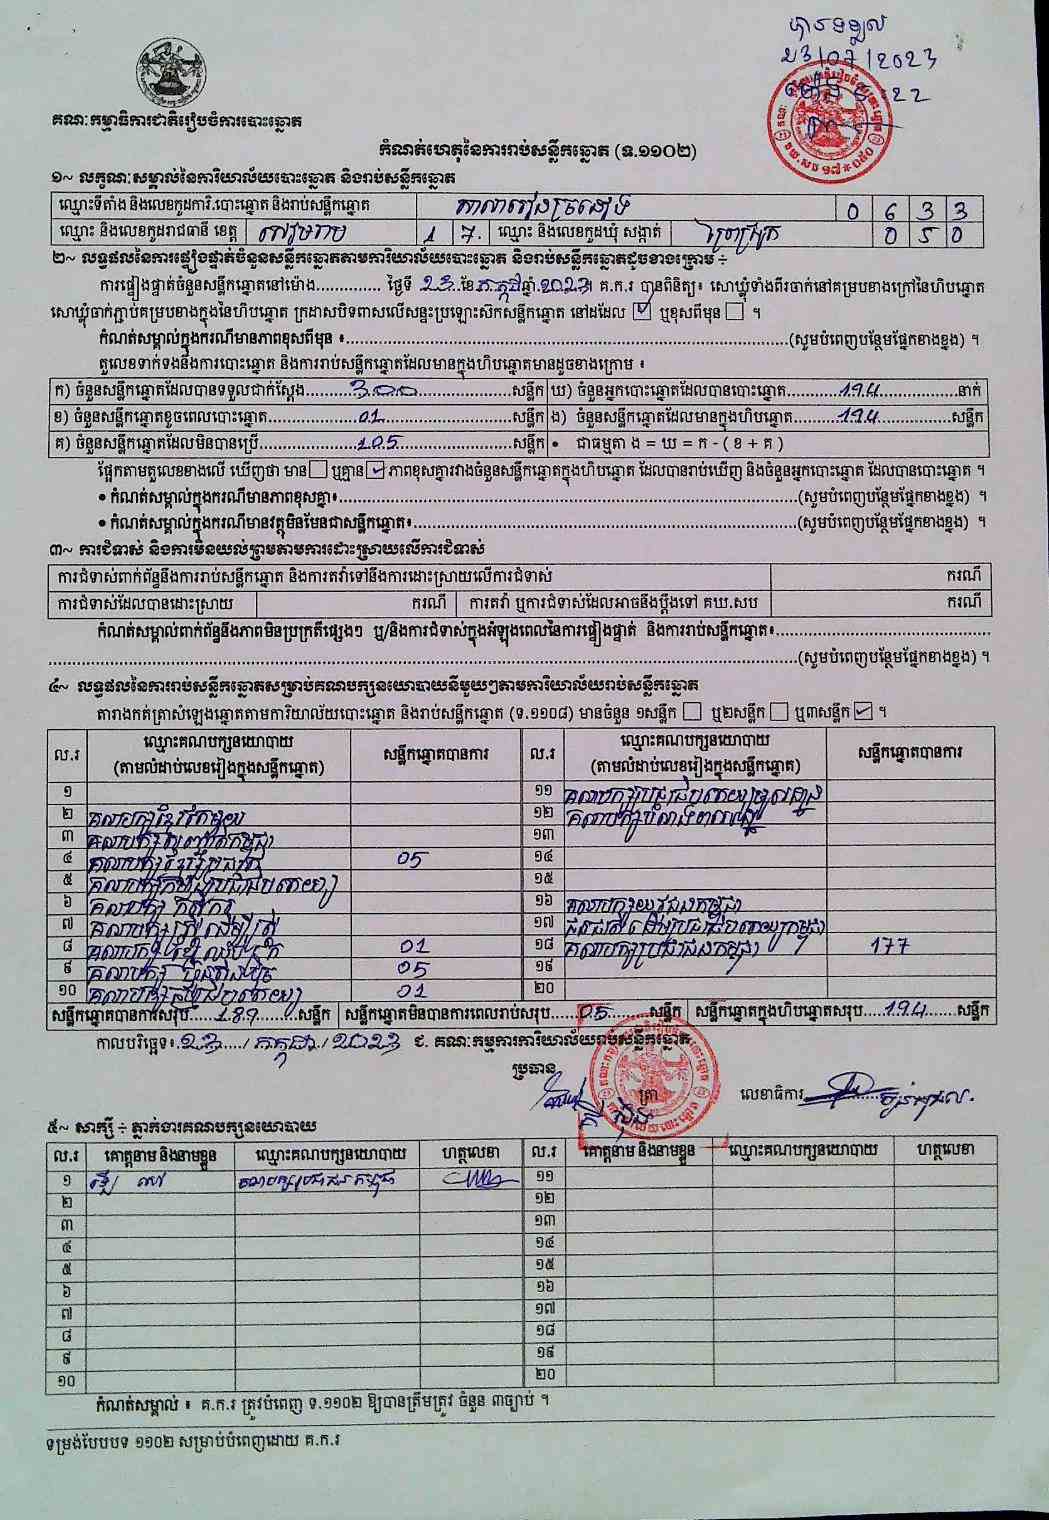 បានទទួល
23/07/2023
គណៈកម្មាធិការជាតិរៀបចំការបោះឆ្នោត
កំណត់ហេតុនៃការរាប់សន្លឹកឆ្នោត (ទ.១១០២)
១~ លក្ខណៈសម្គាល់នៃការិយាល័យបោះឆ្នោត និងរាប់សន្លឹកឆ្នោត
ឈ្មោះទីតាំង និងលេខកូដការិ.បោះឆ្នោត និងរាប់សន្លឹកឆ្នោត 0 6 3 3
ឈ្មោះ និងលេខកូដរាជធានី ខេត្ត សៀមរាប 1 7 ឈ្មោះ និងលេខកូដឃុំ សង្កាត់ 0 5 0
២~ លទ្ធផលនៃការផ្ទៀងផ្ទាត់ចំនួនសន្លឹកឆ្នោតតាមការិយាល័យបោះឆ្នោត និងរាប់សន្លឹកឆ្នោតដូចខាងក្រោម ÷
ការផ្ទៀងផ្ទាត់ចំនួនសន្លឹកឆ្នោតនៅម៉ោង.............. ថ្ងៃទី 23 ខែ កក្កដា ឆ្នាំ 2023។ គ.ក.រ បានពិនិត្យ៖ សោឃ្លុំទាំងពីរចាក់នៅគម្របខាងក្រៅនៃហិបឆ្នោត
សោឃ្លុំចាក់ភ្ជាប់គម្របខាងក្នុងនៃហិបឆ្នោត ក្រដាសបិទពាសលើសន្ទះប្រឡោះស៊កសន្លឹកឆ្នោត នៅដដែល ☑ ឬខុសពីមុន ☐ ។
កំណត់សម្គាល់ក្នុងករណីមានភាពខុសពីមុន ៖..........(សូមបំពេញបន្ថែមផ្នែកខាងខ្នង) ។
តួលេខទាក់ទងនឹងការបោះឆ្នោត និងការរាប់សន្លឹកឆ្នោតដែលមានក្នុងហិបឆ្នោតមានដូចខាងក្រោម ៖
ក) ចំនួនសន្លឹកឆ្នោតដែលបានទទួលជាក់ស្ដែង 300 សន្លឹក ឃ) ចំនួនអ្នកបោះឆ្នោតដែលបានបោះឆ្នោត 194 នាក់
ខ) ចំនួនសន្លឹកឆ្នោតខូចពេលបោះឆ្នោត 01 សន្លឹក ង) ចំនួនសន្លឹកឆ្នោតដែលមានក្នុងហិបឆ្នោត 194 សន្លឹក
គ) ចំនួនសន្លឹកឆ្នោតដែលមិនបានប្រើ 105 សន្លឹក • ជាធម្មតា ង = ឃ = ក - ( ខ + គ )
ផ្អែកតាមតួលេខខាងលើ ឃើញថា មាន ☐ ឬគ្មាន ☑ ភាពខុសគ្នារវាងចំនួនសន្លឹកឆ្នោតក្នុងហិបឆ្នោត ដែលបានរាប់ឃើញ និងចំនួនអ្នកបោះឆ្នោត ដែលបានបោះឆ្នោត ។
• កំណត់សម្គាល់ក្នុងករណីមានភាពខុសគ្នា៖..........(សូមបំពេញបន្ថែមផ្នែកខាងខ្នង) ។
• កំណត់សម្គាល់ក្នុងករណីមានវត្ថុមិនមែនជាសន្លឹកឆ្នោត៖..........(សូមបំពេញបន្ថែមផ្នែកខាងខ្នង) ។
៣~ ការជំទាស់ និងការមិនយល់ព្រមតាមការដោះស្រាយលើការជំទាស់
ការជំទាស់ពាក់ព័ន្ធនឹងការរាប់សន្លឹកឆ្នោត និងការតវ៉ាទៅនឹងការដោះស្រាយលើការជំទាស់ ករណី
ការជំទាស់ដែលបានដោះស្រាយ ករណី ការតវ៉ា ឬការជំទាស់ដែលអាចនឹងប្ដឹងទៅ គឃ.សប ករណី
កំណត់សម្គាល់ពាក់ព័ន្ធនឹងភាពមិនប្រក្រតីផ្សេងៗ ឬ/និងការជំទាស់ក្នុងអំឡុងពេលនៃការផ្ទៀងផ្ទាត់ និងការរាប់សន្លឹកឆ្នោត៖..........
..........(សូមបំពេញបន្ថែមផ្នែកខាងខ្នង) ។
៤~ លទ្ធផលនៃការរាប់សន្លឹកឆ្នោតសម្រាប់គណបក្សនយោបាយនីមួយៗតាមការិយាល័យរាប់សន្លឹកឆ្នោត
តារាងកត់ត្រាសំឡេងឆ្នោតតាមការិយាល័យបោះឆ្នោត និងរាប់សន្លឹកឆ្នោត (ទ.១១០៨) មានចំនួន ១សន្លឹក ☐ ឬ២សន្លឹក ☐ ឬ៣សន្លឹក ☑ ។
ល.រ ឈ្មោះគណបក្សនយោបាយ (តាមលំដាប់លេខរៀងក្នុងសន្លឹកឆ្នោត) សន្លឹកឆ្នោតបានការ ល.រ ឈ្មោះគណបក្សនយោបាយ (តាមលំដាប់លេខរៀងក្នុងសន្លឹកឆ្នោត) សន្លឹកឆ្នោតបានការ
១ ១១
២ គណបក្សខ្មែរតែមួយ ១២
៣ ១៣
៤ 05 ១៤
៥ ១៥
៦ គណបក្ស កសិករ ១៦
៧ ១៧
៨ 01 ១៨ គណបក្សប្រជាជនកម្ពុជា 177
៩ គណបក្ស ហ៊្វុនស៊ិនប៉ិច 05 ១៩
១០ 01 ២០
សន្លឹកឆ្នោតបានការសរុប 189 សន្លឹក សន្លឹកឆ្នោតមិនបានការពេលរាប់សរុប 05 សន្លឹក សន្លឹកឆ្នោតក្នុងហិបឆ្នោតសរុប 194 សន្លឹក
កាលបរិច្ឆេទ៖ 23 / កក្កដា / 2023 ជ. គណៈកម្មការការិយាល័យរាប់សន្លឹកឆ្នោត
ប្រធាន ត្រា លេខាធិការ
៥~ សាក្សី ÷ ភ្នាក់ងារគណបក្សនយោបាយ
ល.រ គោត្តនាម និងនាមខ្លួន ឈ្មោះគណបក្សនយោបាយ ហត្ថលេខា ល.រ គោត្តនាម និងនាមខ្លួន ឈ្មោះគណបក្សនយោបាយ ហត្ថលេខា
១ គណបក្សប្រជាជនកម្ពុជា ១១
២ ១២
៣ ១៣
៤ ១៤
៥ ១៥
៦ ១៦
៧ ១៧
៨ ១៨
៩ ១៩
១០ ២០
កំណត់សម្គាល់ ៖ គ.ក.រ ត្រូវបំពេញ ទ.១១០២ ឱ្យបានត្រឹមត្រូវ ចំនួន ៣ច្បាប់ ។
ទម្រង់បែបបទ ១១០២ សម្រាប់បំពេញដោយ គ.ក.រ